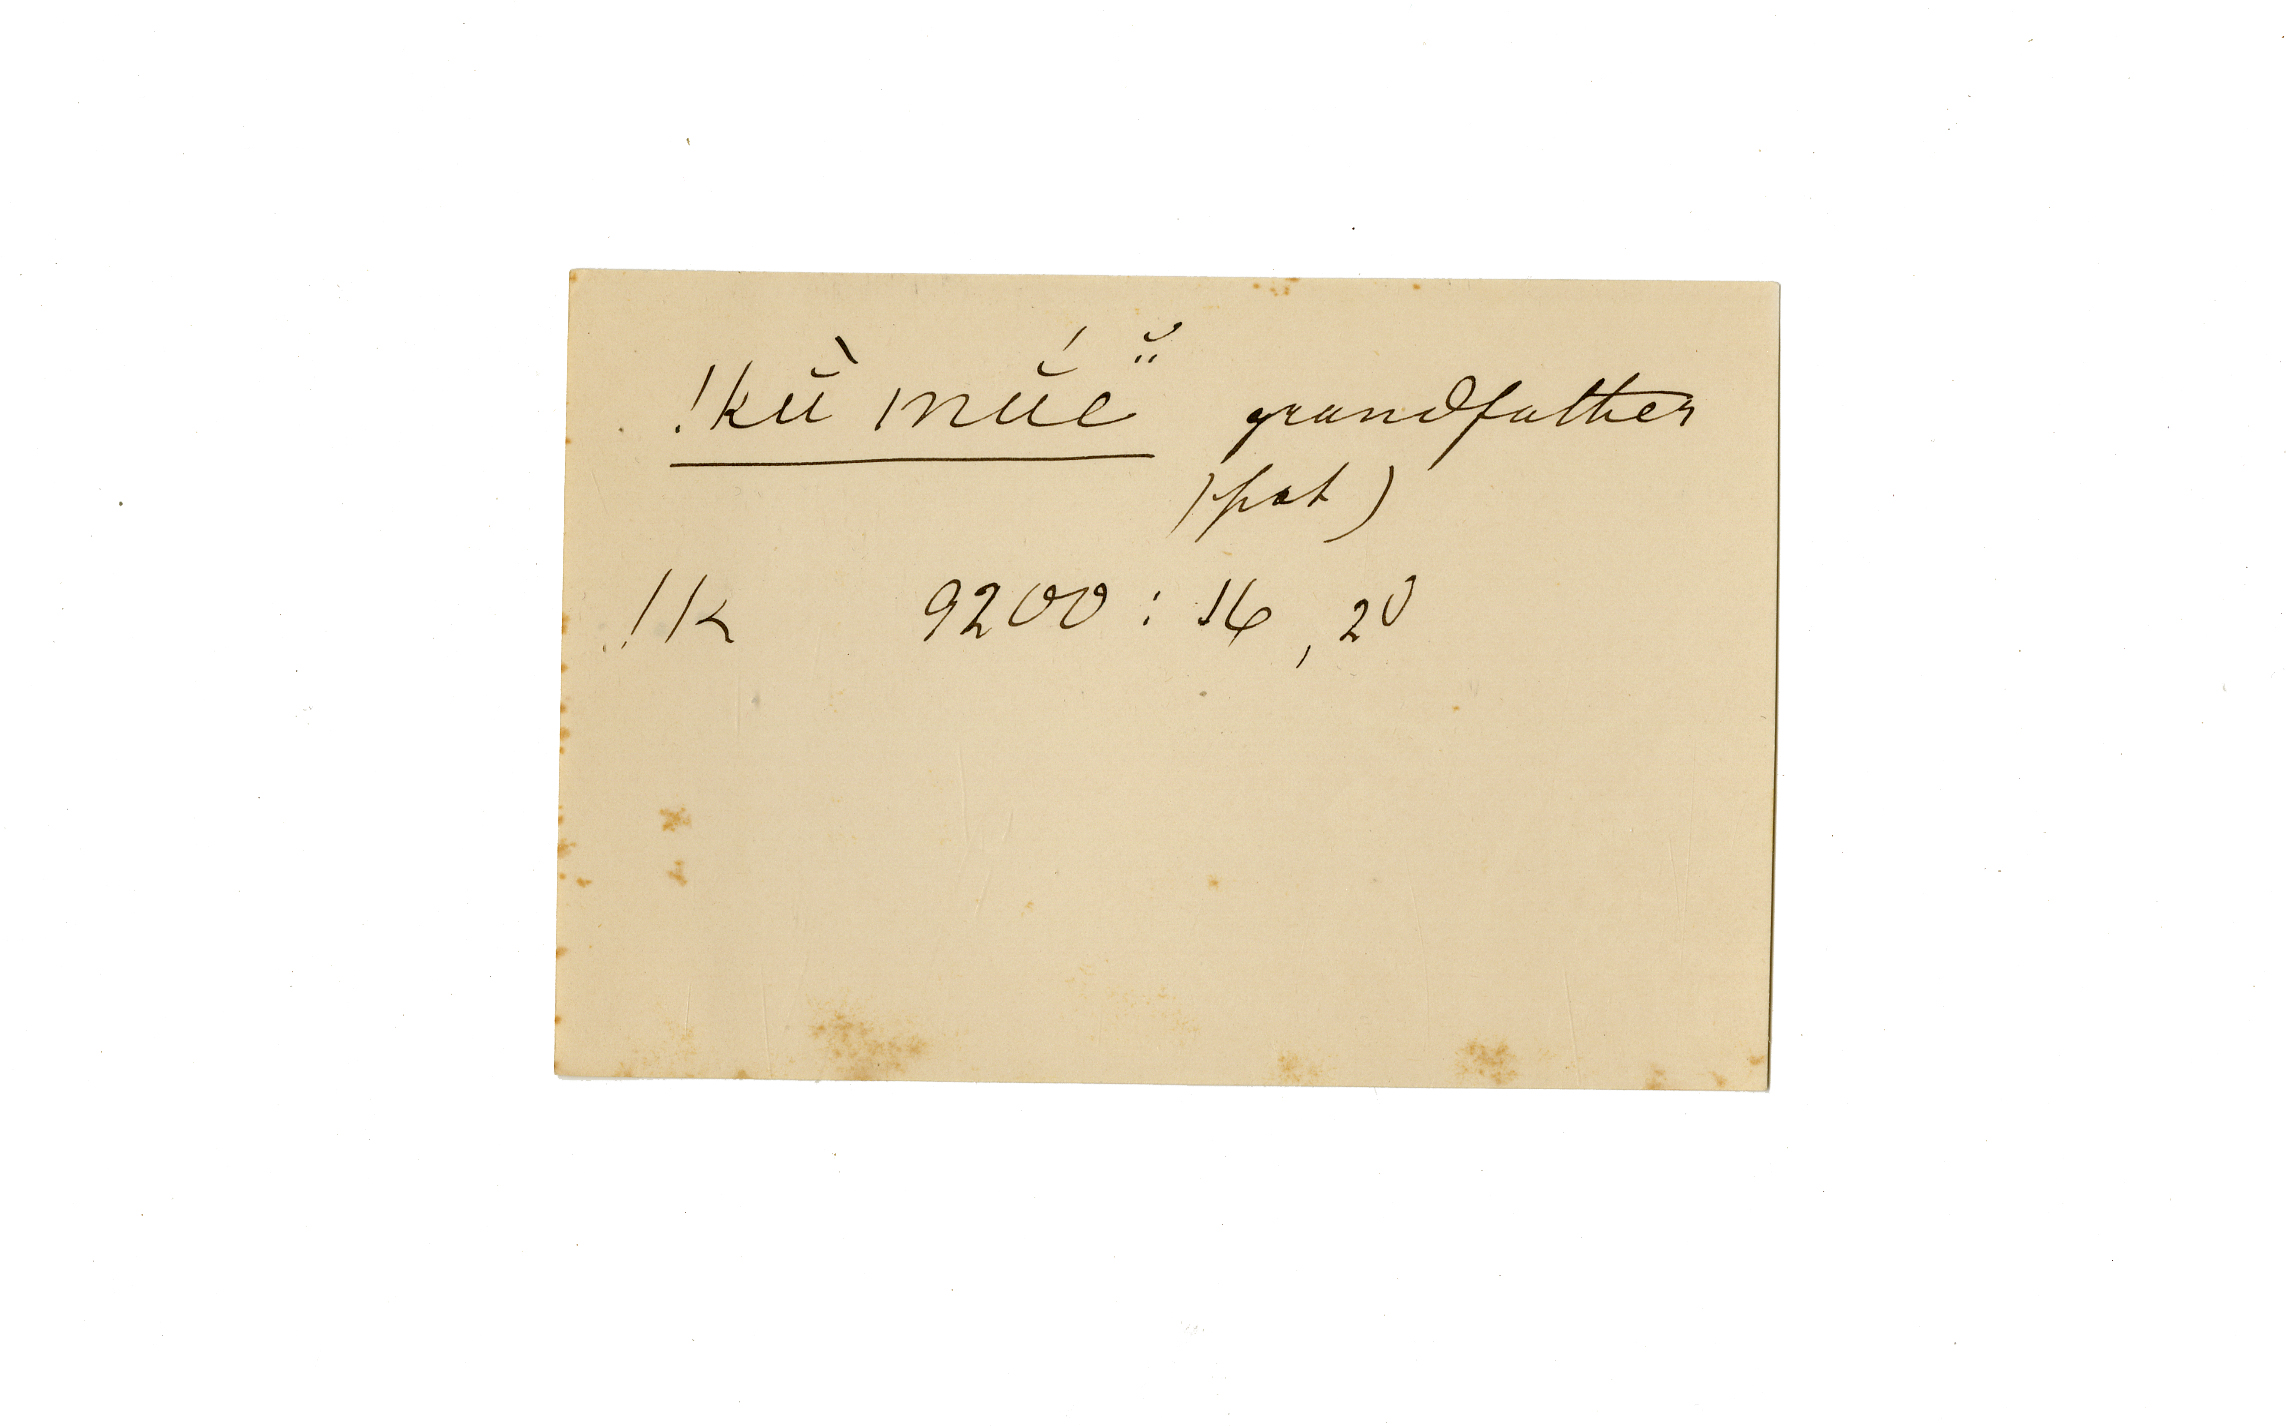 !kŭ̀ mŭ́ĕ̈ grandfather
(pat)
!k 9200 : 16, 20